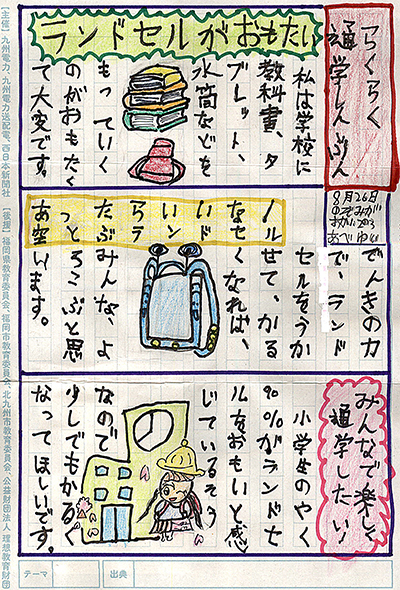 らくらく
通学しんぶん
ランドセルがおもたい
私は学校に
教科書、タ
ブレット、
水筒などを
もっていく
のがおもたく
て大変です。
8月26日
のぞみが
あべゆい
でんきの力
で、ランド
セルをうか
せて、かる
くなれば、
みんな、よ
ろこぶと思
います。
あったらいいな!
空とぶランドセル
みんなで楽しく
通学したい!
小学生のやく
90%がランドセ
ルをおもいと感
じているそう
なので
少しでもかるく
なってほしいです。
テーマ
出典
【主催】九州電力、九州電力送配電、西日本新聞社 【後援】福岡県教育委員会、福岡市教育委員会、北九州市教育委員会、公益財団法人 理想教育財団